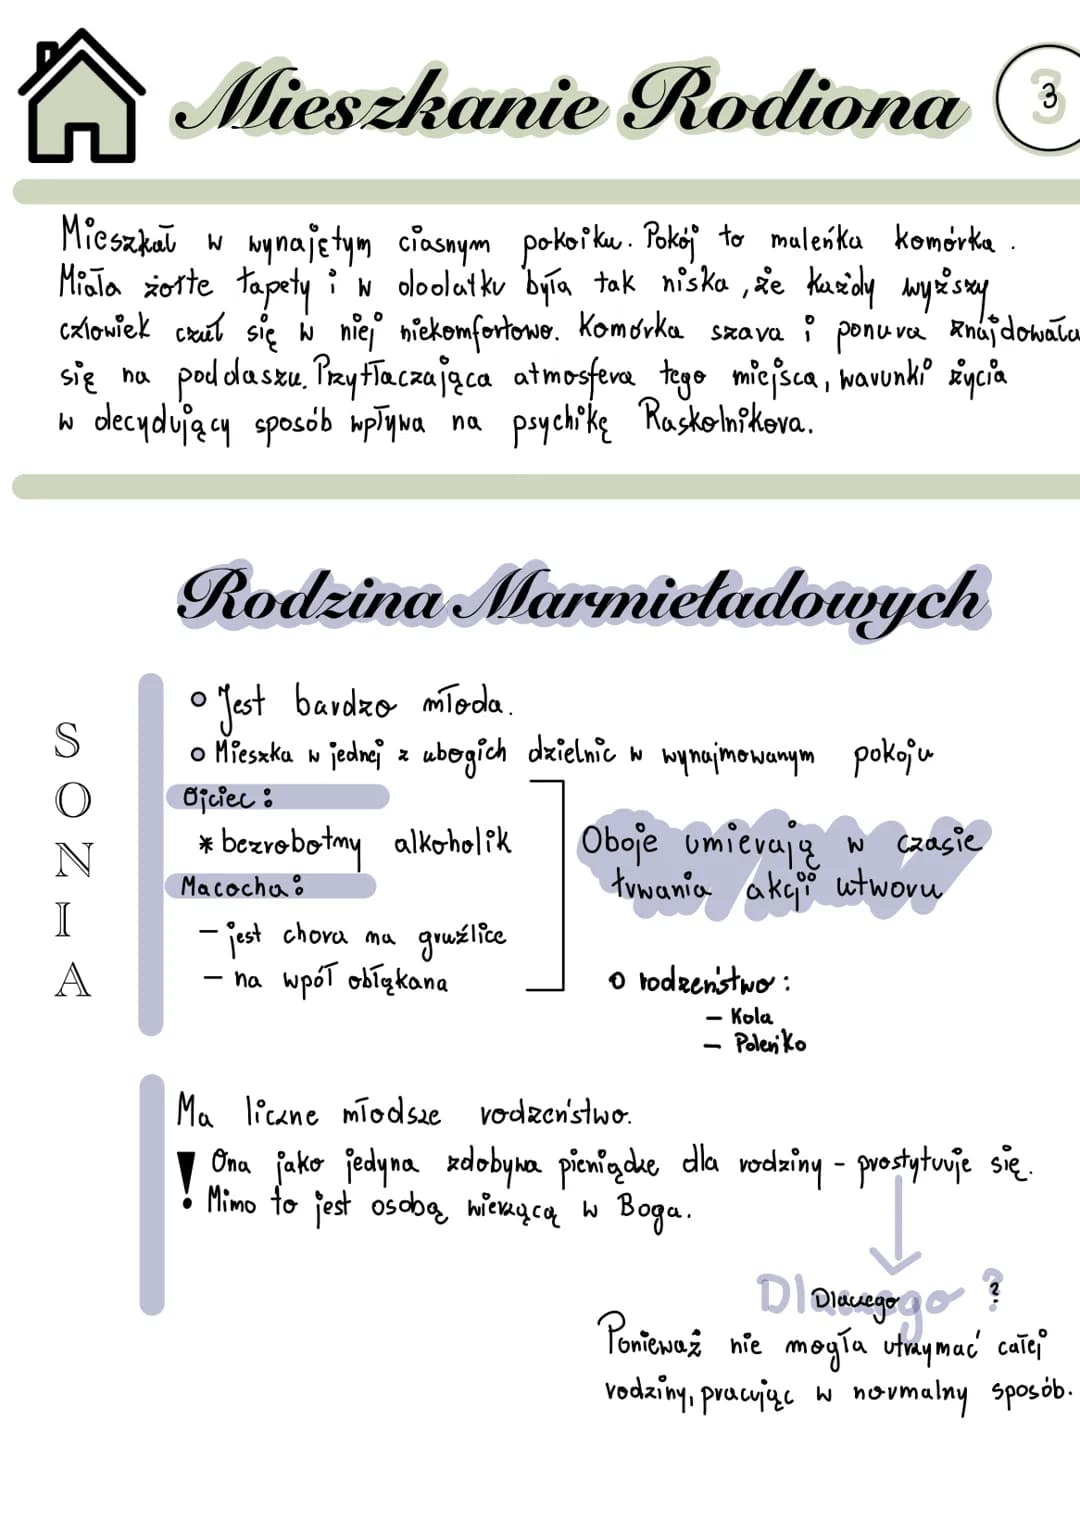 Mieszkanie Rodiona
3
Mieszkał w wynajętym ciasnym pokoiku. Pokój to maleńka komórka.
Miała żółte tapety i w dodatku była tak niska, że każdy wyższy
człowiek czuł się w niej niekomfortowo. Komórka szara i ponura znajdowała
się na poddaszu. Przytłaczająca atmosfera tego miejsca, warunki życia
w decydujący sposób wpływa na psychikę Raskolnikova.
Rodzina Marmieładowych
SONIA
Jest bardzo młoda.
Mieszka w jednej z ubogich dzielnic w wynajmowanym pokoju
Ojciec:
* bezrobotny alkoholik
Macocha:
- jest chora na gruźlice
- na wpół obłąkana
Oboje umierają w czasie
trwania akcji utworu
rodzeństwo:
- Kola
- Poleńko
Ma liczne młodsze rodzeństwo.
! Ona jako jedyna zdobywa pieniądze dla rodziny - prostytuuje się.
Mimo to jest osobą wierzącą w Boga.
Dlaczego ?
Dlaczego
Ponieważ nie mogła utrzymać całej
rodziny, pracując w normalny sposób.